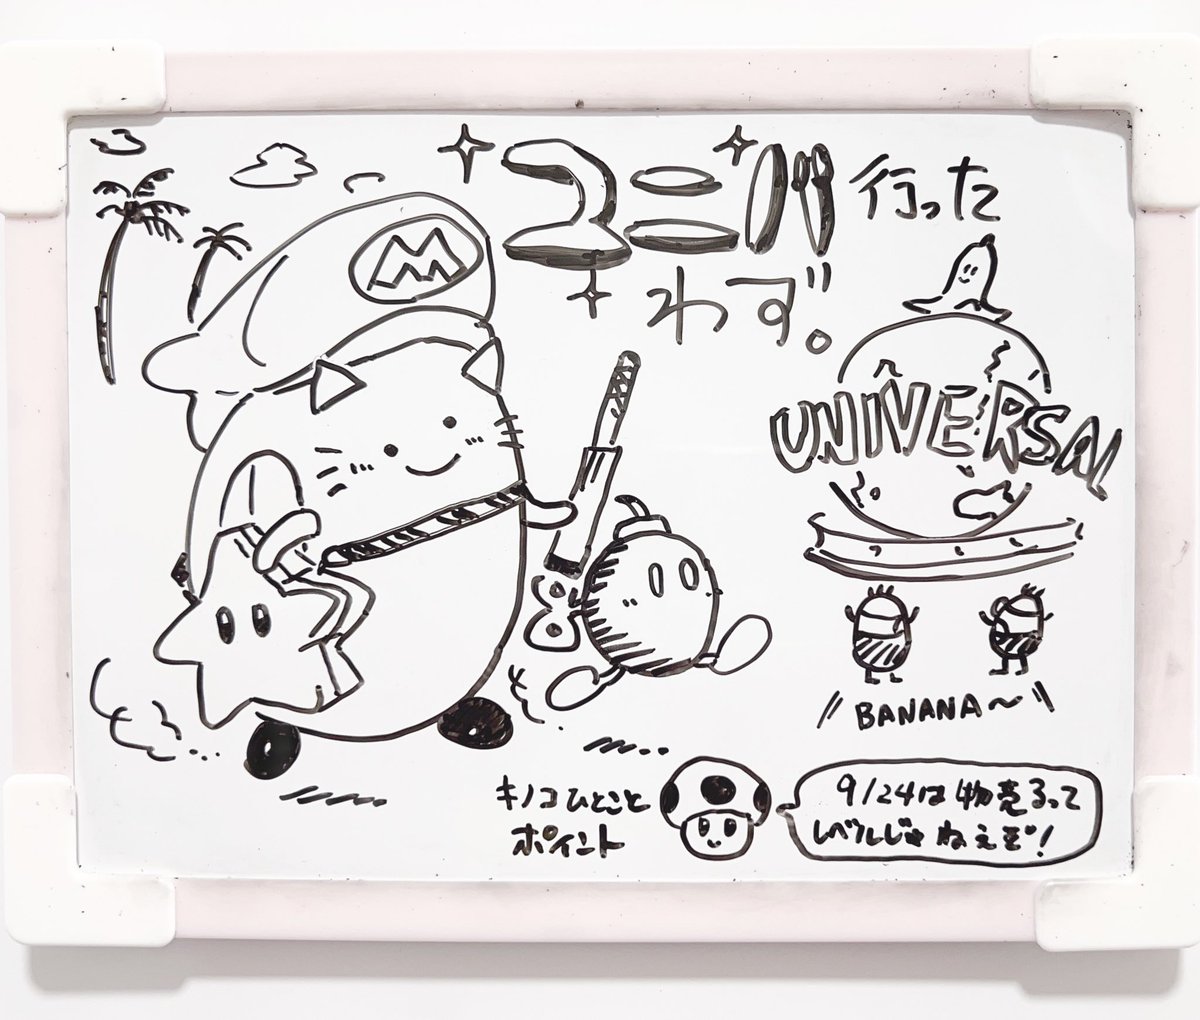 ユニバ行った
わず。
M
UNIVERSAL
BANANA〜
キノコひとこと
ポイント
9/24は物売るって
レベルじゃねぇぞ!